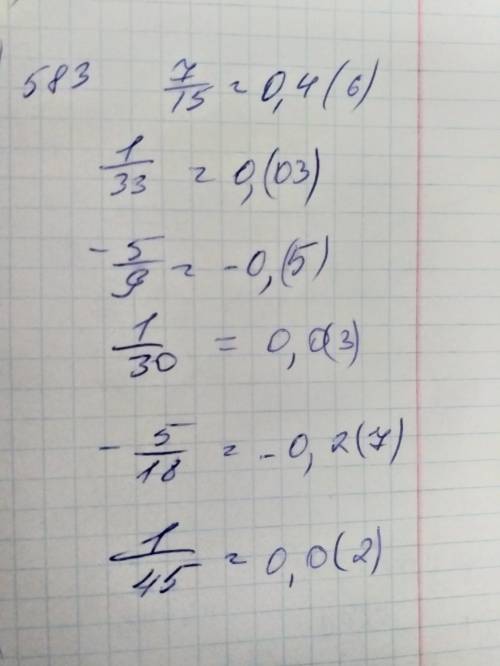 583 7/15 = 0,4(6)
1/33 = 0,(03)
-5/9 = -0,(5)
1/30 = 0,0(3)
-5/18 = -0,2(7)
1/45 = 0,0(2)